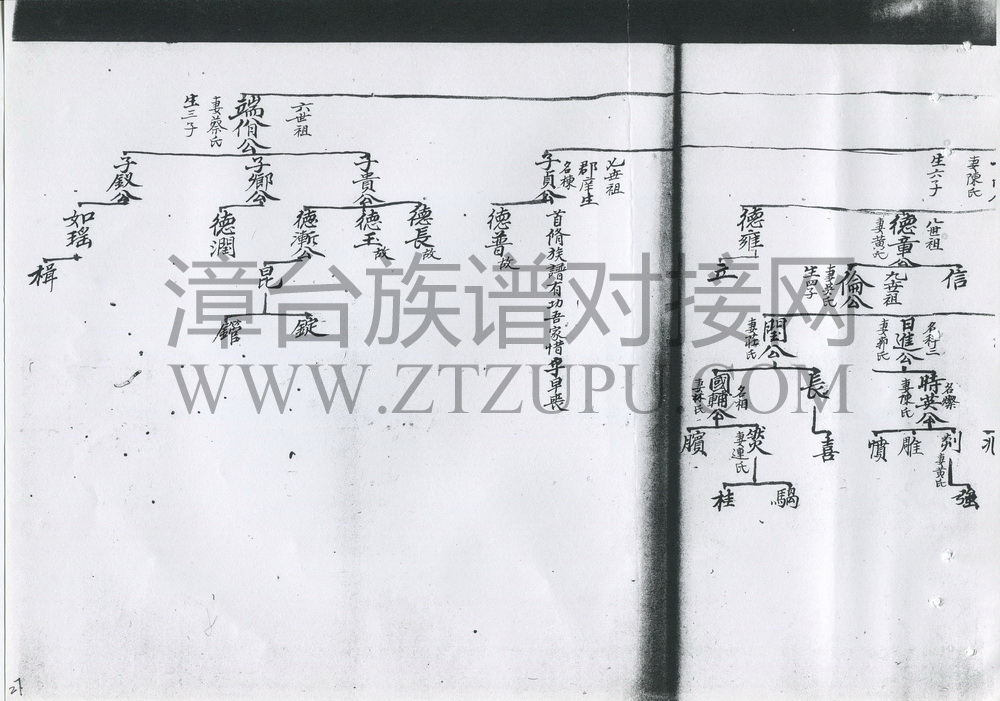 妻陳氏
生六子
六世祖
端伯公
妻蔡氏
生三子
七世祖
郡庠生
名棟
子貞公
首脩族譜有功吾家惜乎早喪
子貴公
子鄉公
子釵公
八世祖
德童公
妻黃氏
德雍
德普故
德長故
德玉故
德漸公
德潤
如瑤
信
九世祖
倫公
妻吳氏
生四子
立
昆
楫
名科二
日進公
妻郭氏
閏公
妻莊氏
錠
錧
名燦
時英公
妻陳氏
長
名相
國輔公
妻林氏
剡
妻黃氏
雕
憤
喜
妻連氏
臏
強
騳
桂
漳台族谱对接网
WWW.ZTZUPU.COM
21